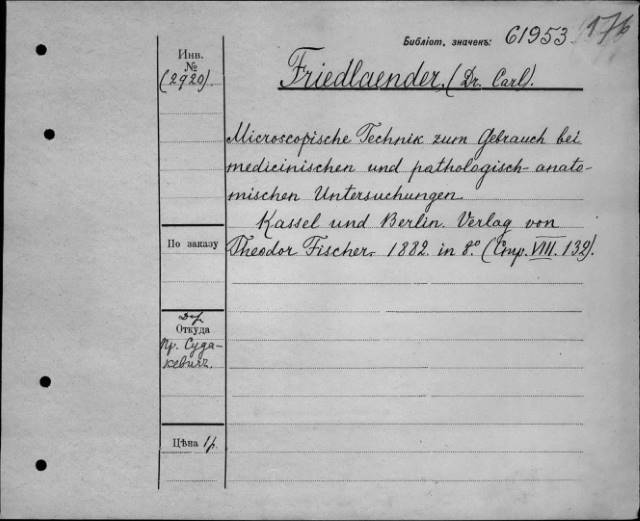 Библіот. значекъ: 61953 176
Инв.
№
(2920).
Friedlaender. (Dr. Carl).
Microscopische Technik zum Gebrauch bei
medicinischen und pathologisch-anato-
mischen Untersuchungen.
Kassel und Berlin. Verlag von
По заказу
Theodor Fischer. 1882. in 8º. (Стр. VIII. 132).
Откуда
Пр. Суда-
кевичъ.
Цѣна 1р.